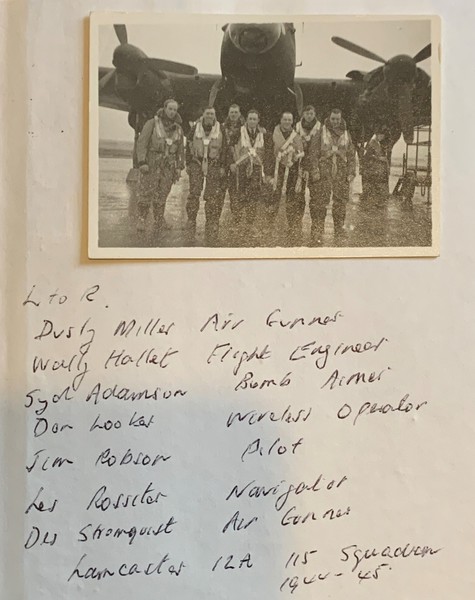 L to R.
Dusty Miller Air Gunner
Wally Hallet Flight Engineer
Syd Adamson Bomb Aimer
Don Looker Wireless Operator
Jim Robson Pilot
Les Rossiter Navigator
Des Stromquist Air Gunner
Lancaster 12A 115 Squadron
1944-45